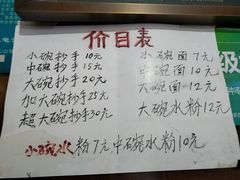 价目表
小碗抄手10元
中碗抄手15元
大碗抄手20元
加大碗抄手25元
超大碗抄手30元
小碗面7元
中碗面10元
大碗面12元
大碗水粉12元
小碗水粉7元中碗水粉10元